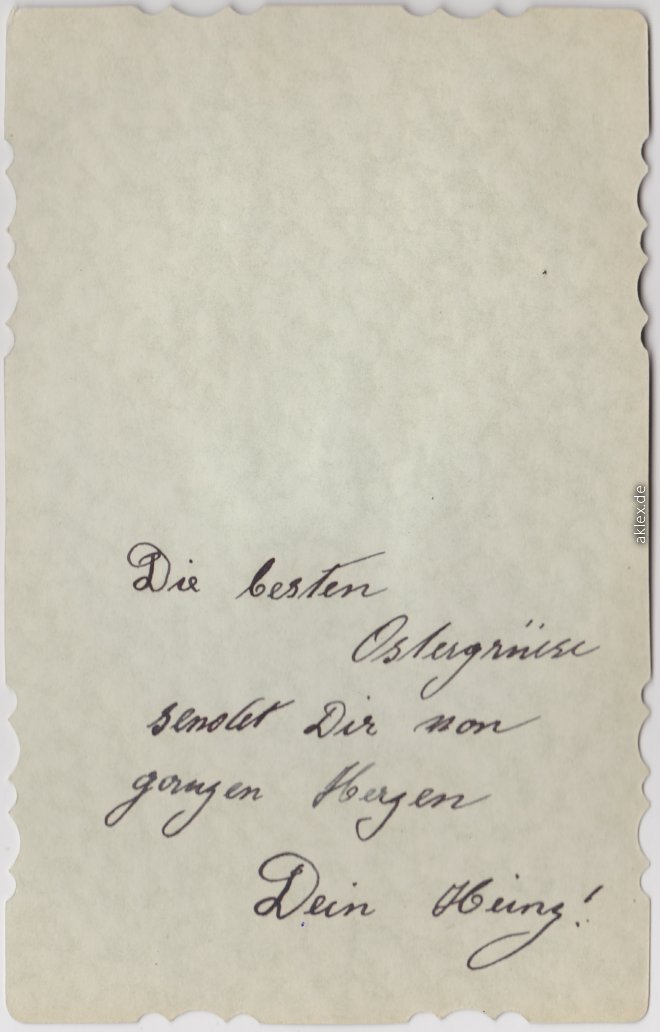 Die besten
Ostergrüse
sendet Dir von
ganzen Herzen
Dein Heinz!
aklex.de